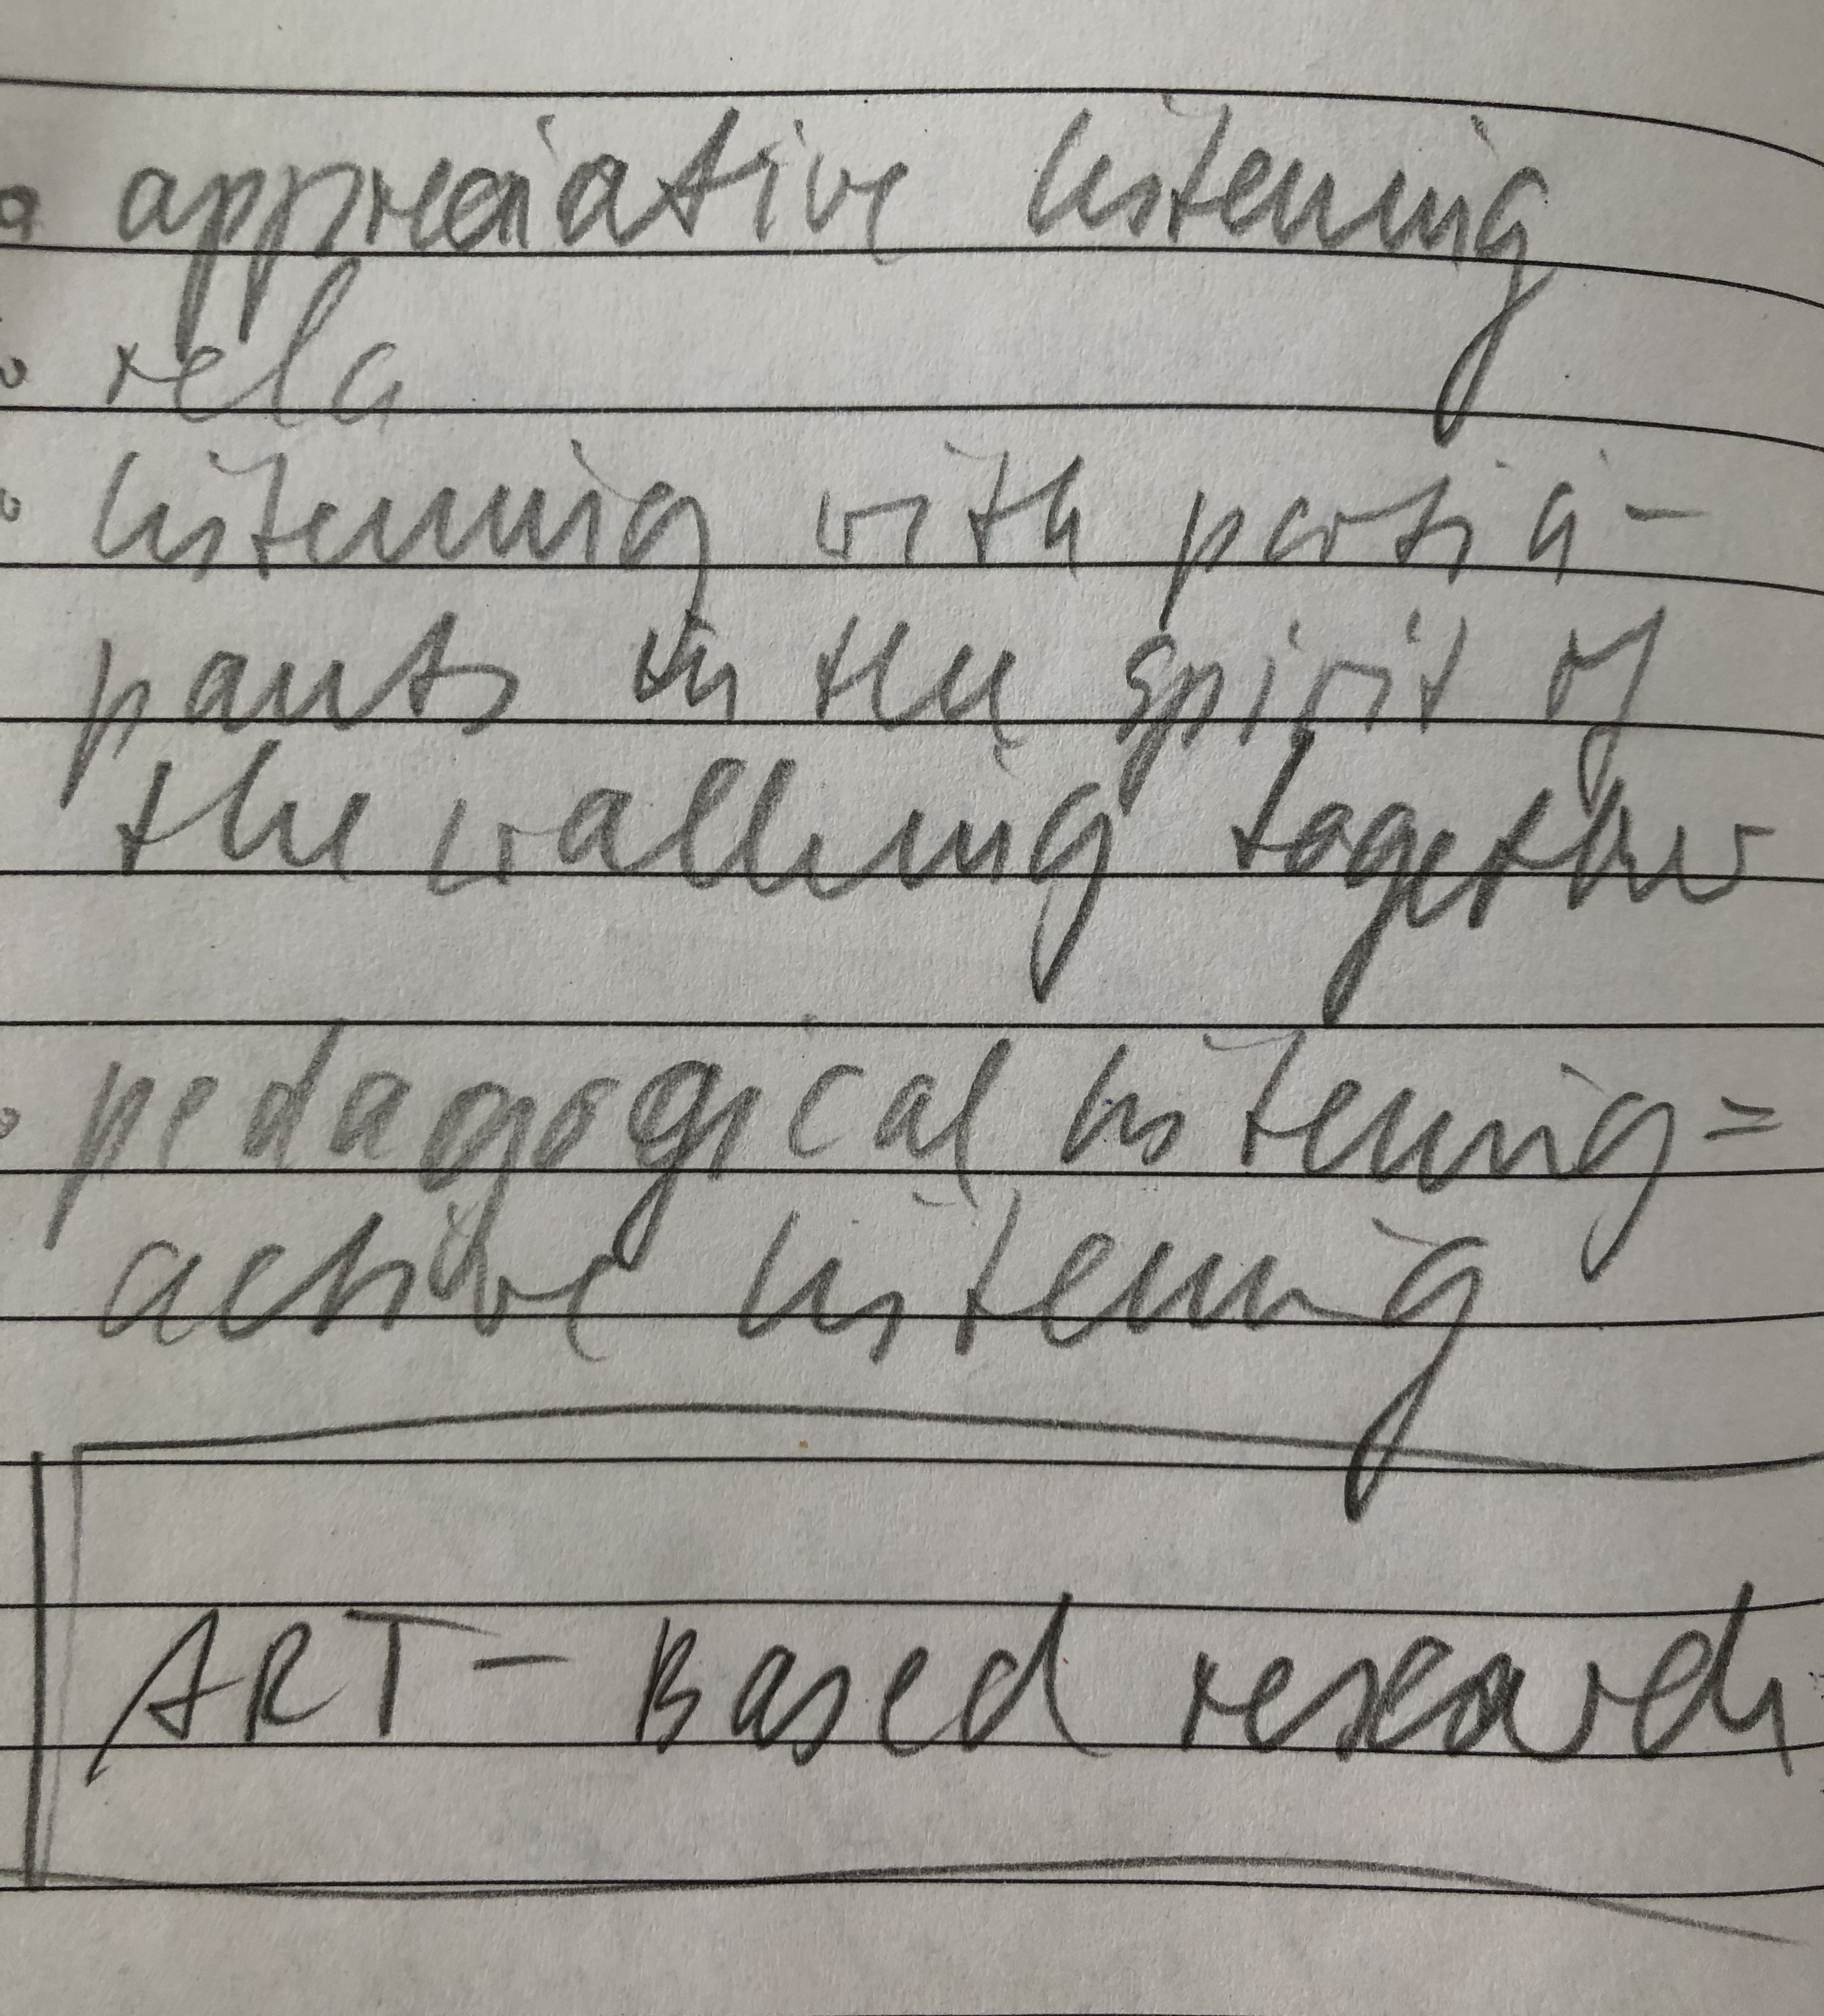 ◦ appreciative listening
◦ rela
◦ listening with partici-
pants in the spirit of
the walking together
◦ pedagogical listening =
active listening
ART - Based research